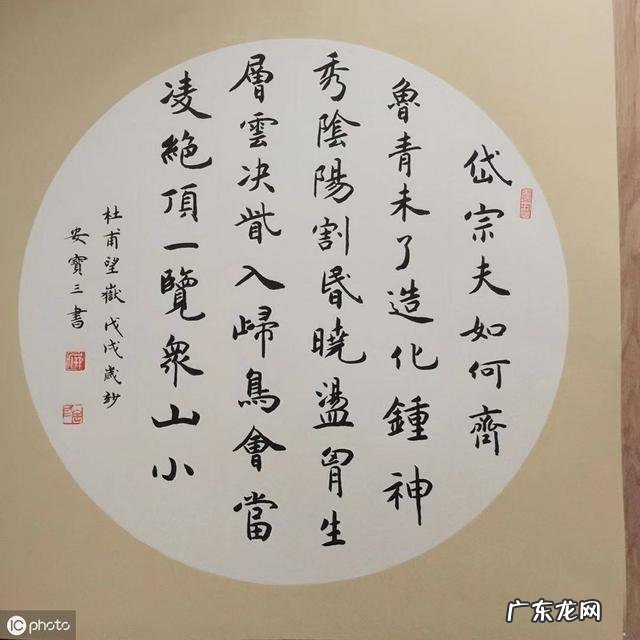 岱宗夫如何齊
魯青未了造化鍾神
秀陰陽割昏曉盪胷生
層雲決眥入歸鳥會當
凌絕頂一覽衆山小
杜甫望嶽戊戌歲杪
安寶三書
iC photo
广东龙网